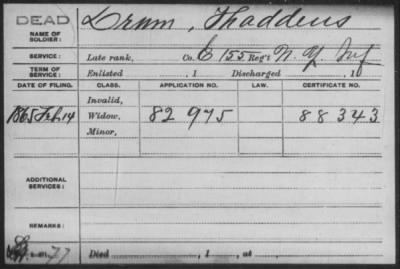 DEAD Drum, Thaddeus
NAME OF SOLDIER:
SERVICE: Late rank, Co. E 155 Reg't N. Y. Inf
TERM OF SERVICE: Enlisted , 1 Discharged , 1
DATE OF FILING. CLASS. APPLICATION NO. LAW. CERTIFICATE NO.
Invalid,
1865 Feb. 14 Widow, 82 975 88 343
Minor,
ADDITIONAL SERVICES:
REMARKS:
77 Died , 1 , at